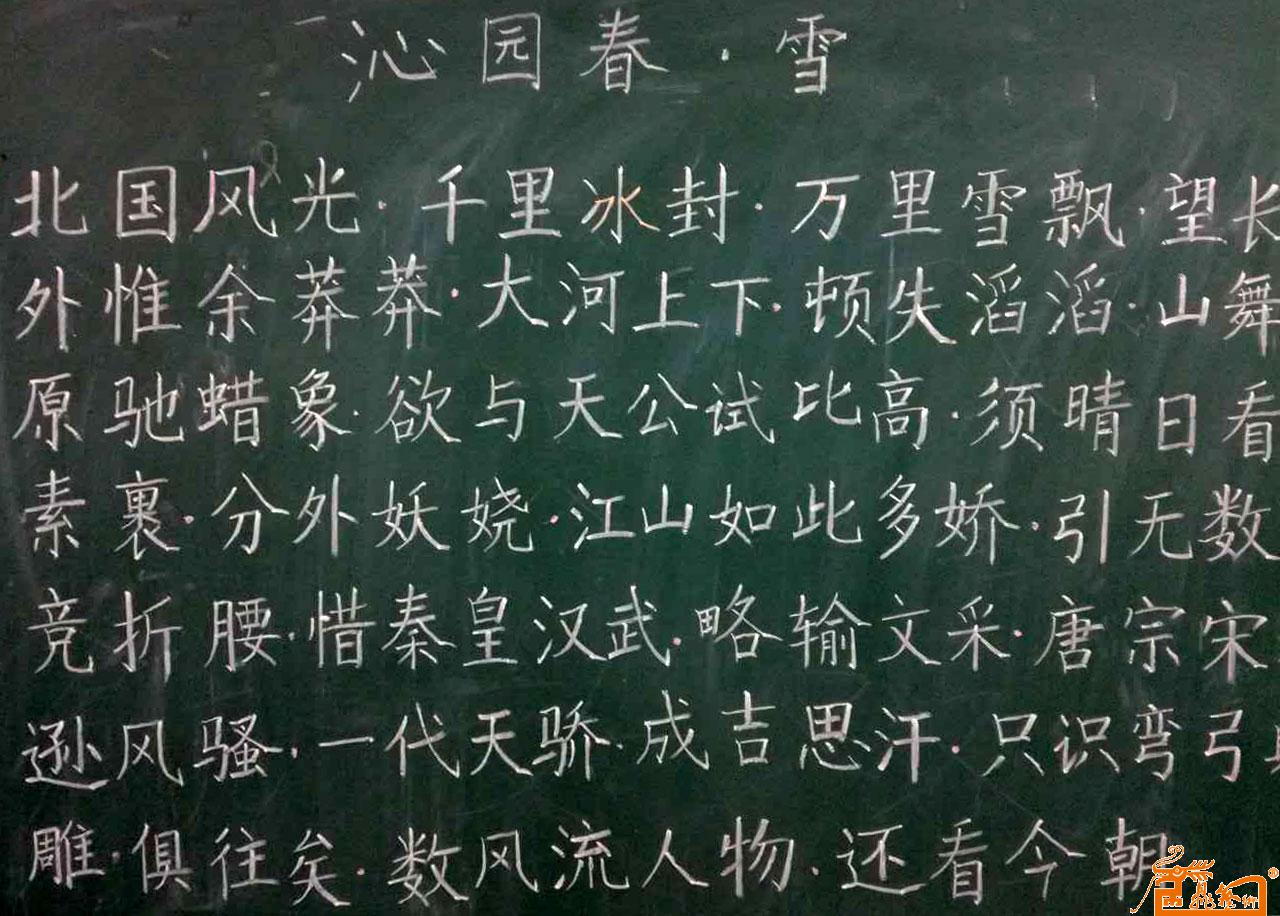 沁园春·雪
北国风光·千里冰封·万里雪飘·望长
外惟余莽莽·大河上下·顿失滔滔·山舞
原驰蜡象·欲与天公试比高·须晴日看
素裹·分外妖娆·江山如此多娇·引无数
竞折腰·惜秦皇汉武·略输文采·唐宗宋
逊风骚·一代天骄·成吉思汗·只识弯弓
雕·俱往矣·数风流人物·还看今朝